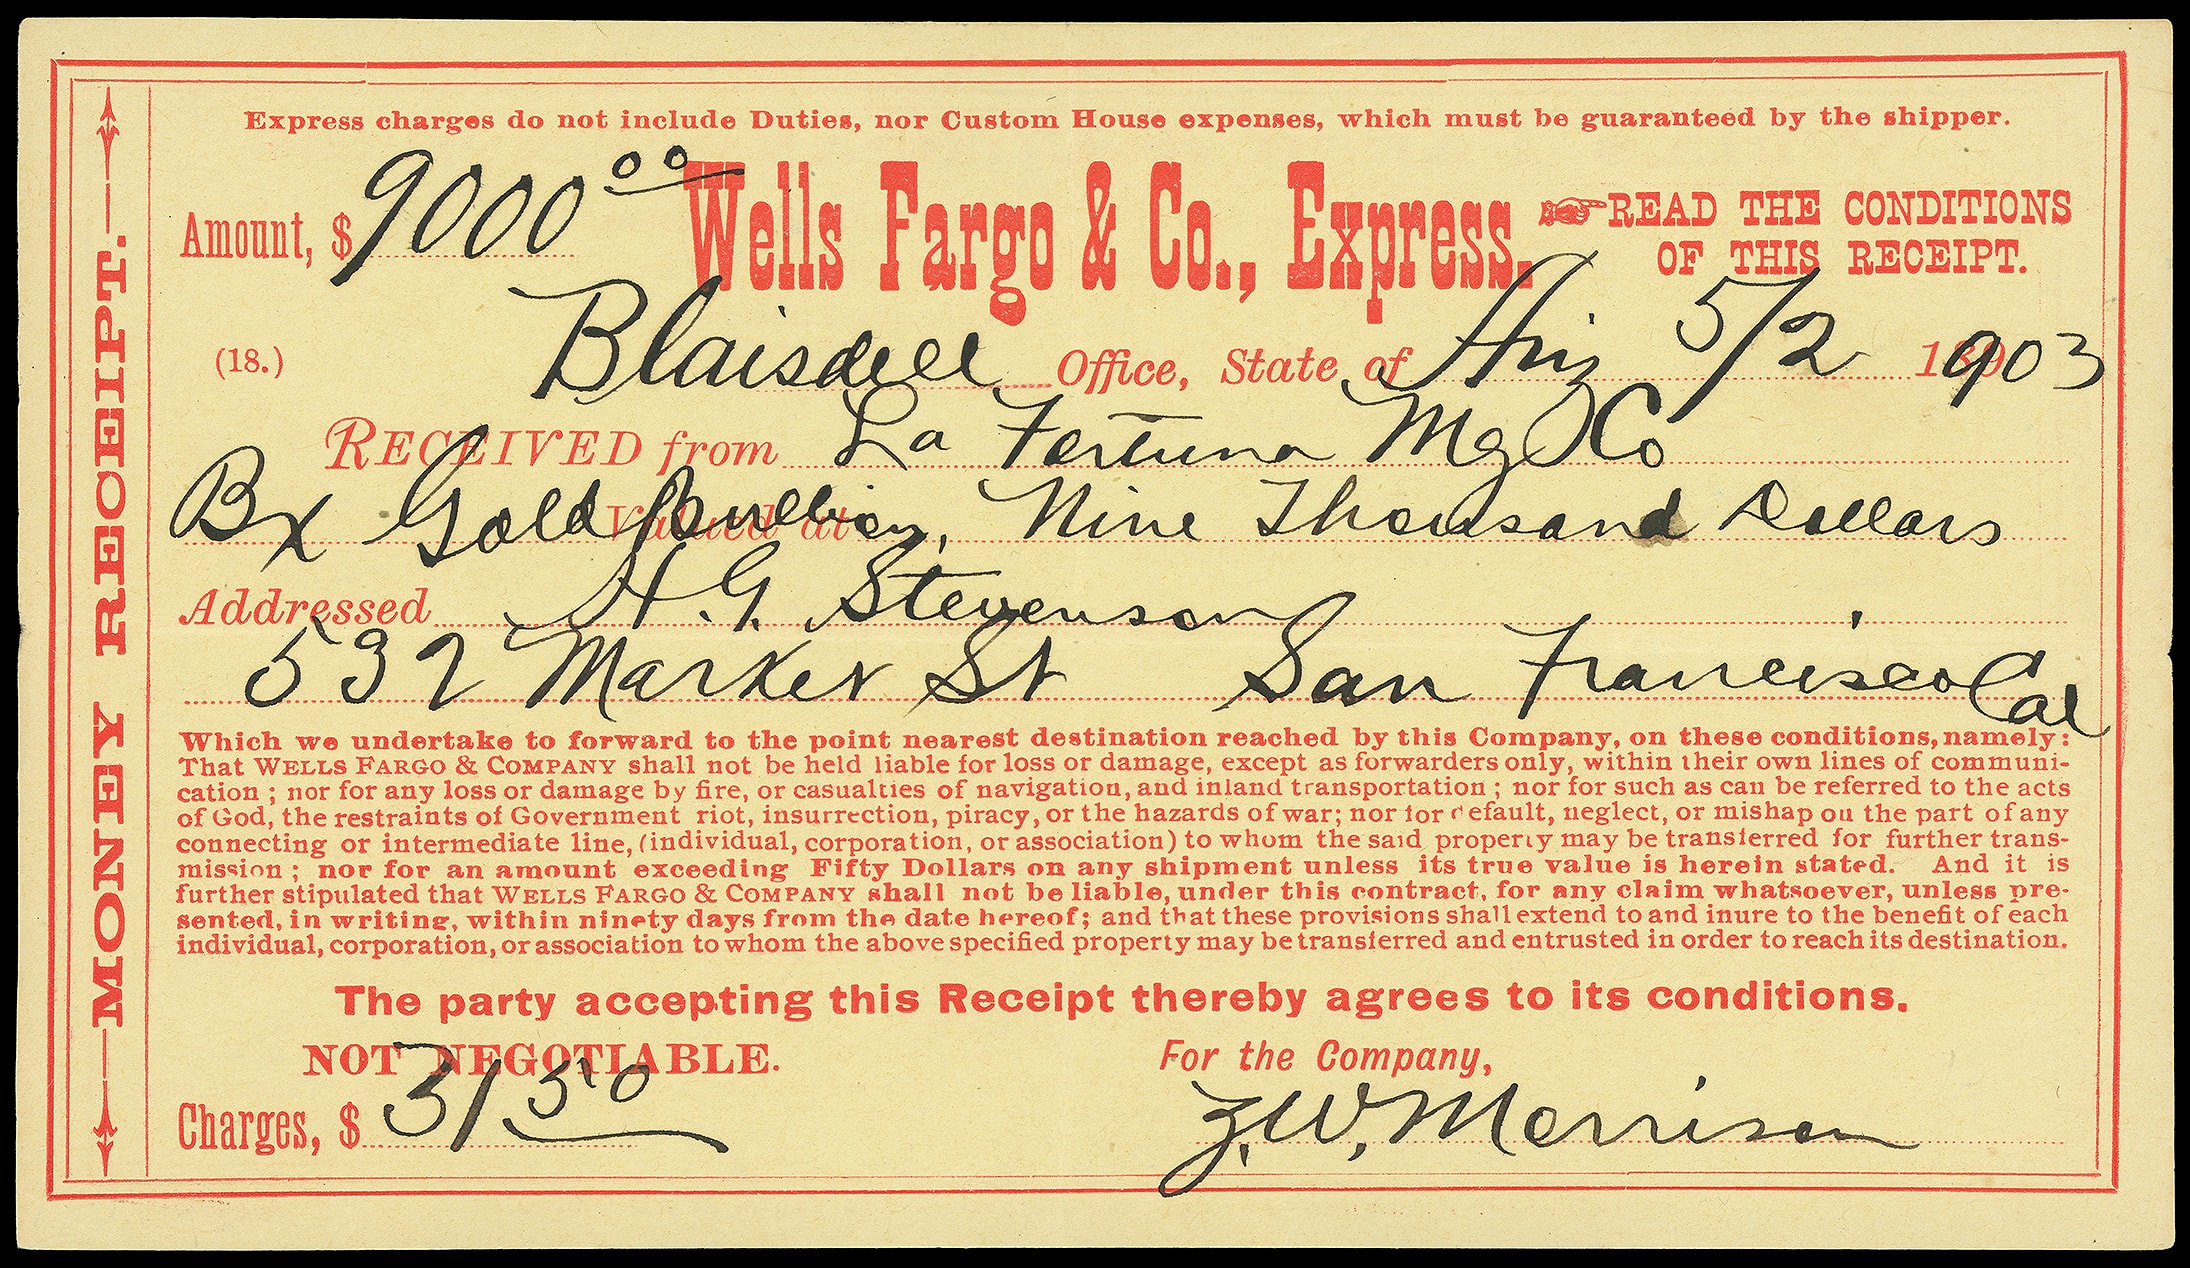 MONEY RECEIPT.
Express charges do not include Duties, nor Custom House expenses, which must be guaranteed by the shipper.
Amount, $ 9000 00 Wells Fargo & Co., Express. READ THE CONDITIONS
OF THIS RECEIPT.
(18.) Blaisdell Office, State of Ariz 5/2 1903
RECEIVED from La Fortuna Mg Co
Bx Gold Bullion, Valued at Nine Thousand Dollars
Addressed H. G. Stevenson
532 Market St San Francisco Cal
Which we undertake to forward to the point nearest destination reached by this Company, on these conditions, namely:
That WELLS FARGO & COMPANY shall not be held liable for loss or damage, except as forwarders only, within their own lines of communi-
cation; nor for any loss or damage by fire, or casualties of navigation, and inland transportation; nor for such as can be referred to the acts
of God, the restraints of Government riot, insurrection, piracy, or the hazards of war; nor for default, neglect, or mishap on the part of any
connecting or intermediate line, (individual, corporation, or association) to whom the said property may be transferred for further trans-
mission; nor for an amount exceeding Fifty Dollars on any shipment unless its true value is herein stated. And it is
further stipulated that WELLS FARGO & COMPANY shall not be liable, under this contract, for any claim whatsoever, unless pre-
sented, in writing, within ninety days from the date hereof; and that these provisions shall extend to and inure to the benefit of each
individual, corporation, or association to whom the above specified property may be transferred and entrusted in order to reach its destination.
The party accepting this Receipt thereby agrees to its conditions.
NOT NEGOTIABLE. For the Company,
Charges, $ 31 50 Z. W. Morrison